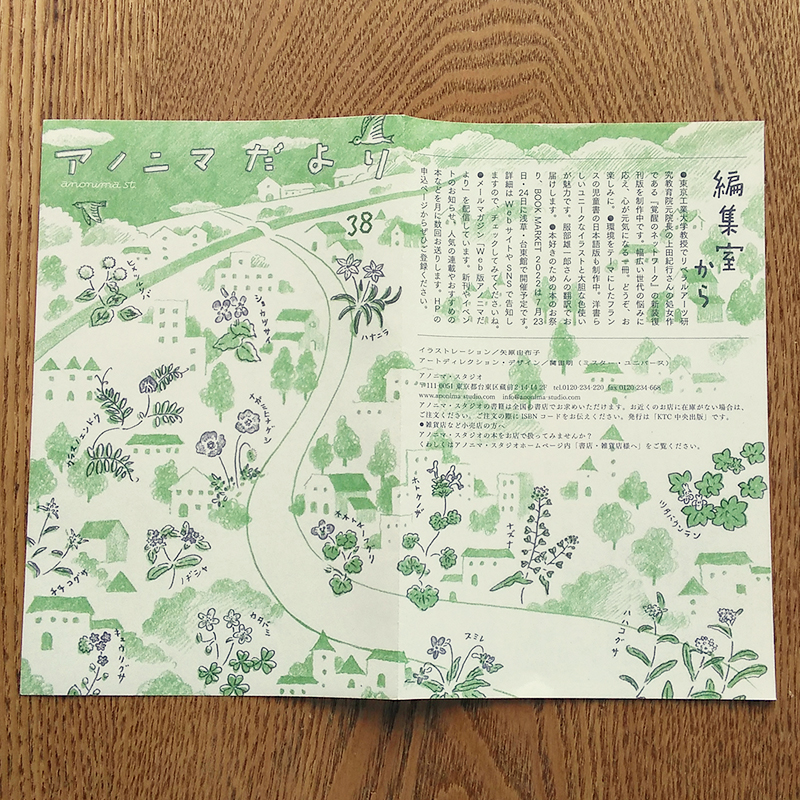 アノニマ だより
anonima st.
38
編集室
から
●東京工業大学教授でリベラルアーツ研
究教育院元院長の上田紀行さんの処女作
である『覚醒のネットワーク』の新装復
刊版を制作中です。幅広い世代の悩みに
応え、心が元気になる一冊。どうぞ、お
楽しみに。●環境をテーマにしたフラン
スの児童書の日本語版も制作中。洋書ら
しいユニークなイラストと大胆な色使い
が魅力です。服部雄一郎さんの翻訳でお
届けします。●本好きのための本のお祭
り、BOOK MARKET 2022は7月23
日・24日に浅草・台東館で開催予定です。
詳細はWebサイトやSNSで告知し
ますので、チェックしてみてくださいね。
●メールマガジン「Web版アノニマだ
より」を配信しています。新刊やイベン
トのお知らせ、人気の連載やおすすめの
本などを月に数回お送りします。HPの
申込ページからぜひご登録ください。
イラストレーション/矢原由布子
アートディレクション・デザイン/関宙明（ミスター・ユニバース）
アノニマ・スタジオ
〒111-0051 東京都台東区蔵前2-14-14 2F tel.0120-234-220 fax 0120-234-668
www.anonima-studio.com info@anonima-studio.com
アノニマ・スタジオの書籍は全国の書店でお求めいただけます。お近くのお店に在庫がない場合は、
ご注文ください。ご注文の際にISBNコードをお伝えください。発行は「KTC中央出版」です。
●雑貨店など小売店の方へ
アノニマ・スタジオの本をお店で扱ってみませんか?
くわしくはアノニマ・スタジオホームページ内「書店・雑貨店様へ」をご覧ください。
ヒメツルソバ
ショカツサイ
ハナニラ
カラスノエンドウ
ナガミヒナゲシ
チチコグサ
ノヂシャ
オオイヌノフグリ
ホトケノザ
ナズナ
ツタバウンラン
キュウリグサ
カタバミ
スミレ
ハハコグサ